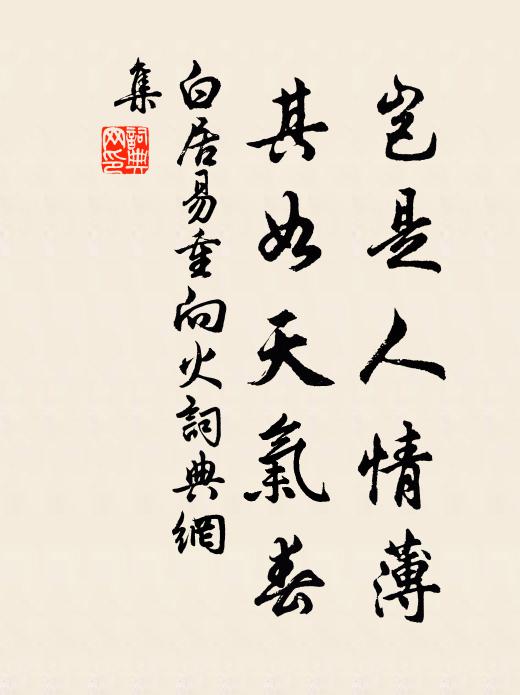 豈是人情薄
其如天氣春
白居易重向火詞典網
集
詞典網印